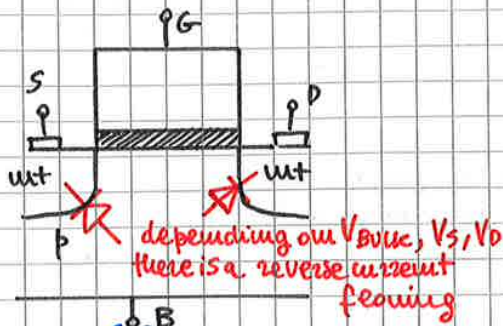 G
S
D
n+
n+
p
depending on VBULK, VS, VD
there is a reverse current
flowing
B